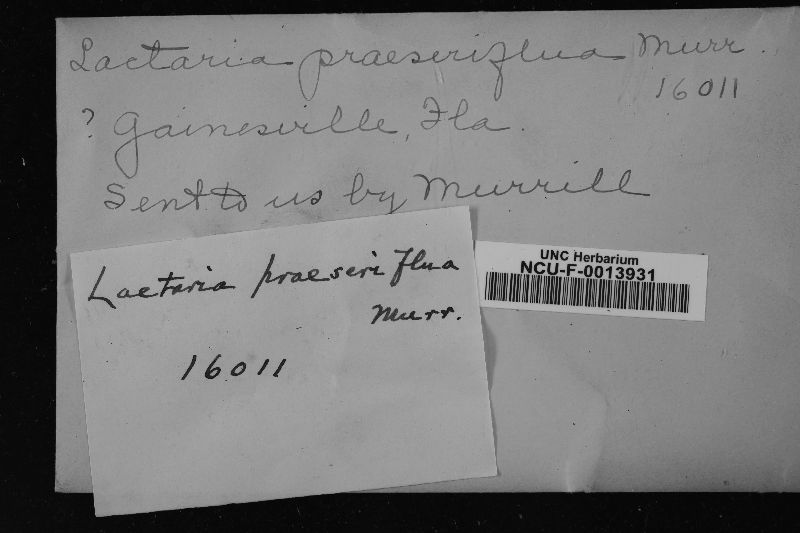 Lactaria praeseriflua Murr.
16011
? Gainesville, Fla.
Sent to us by Murrill
Lactaria praeseriflua
Murr.
16011
UNC Herbarium
NCU-F-0013931